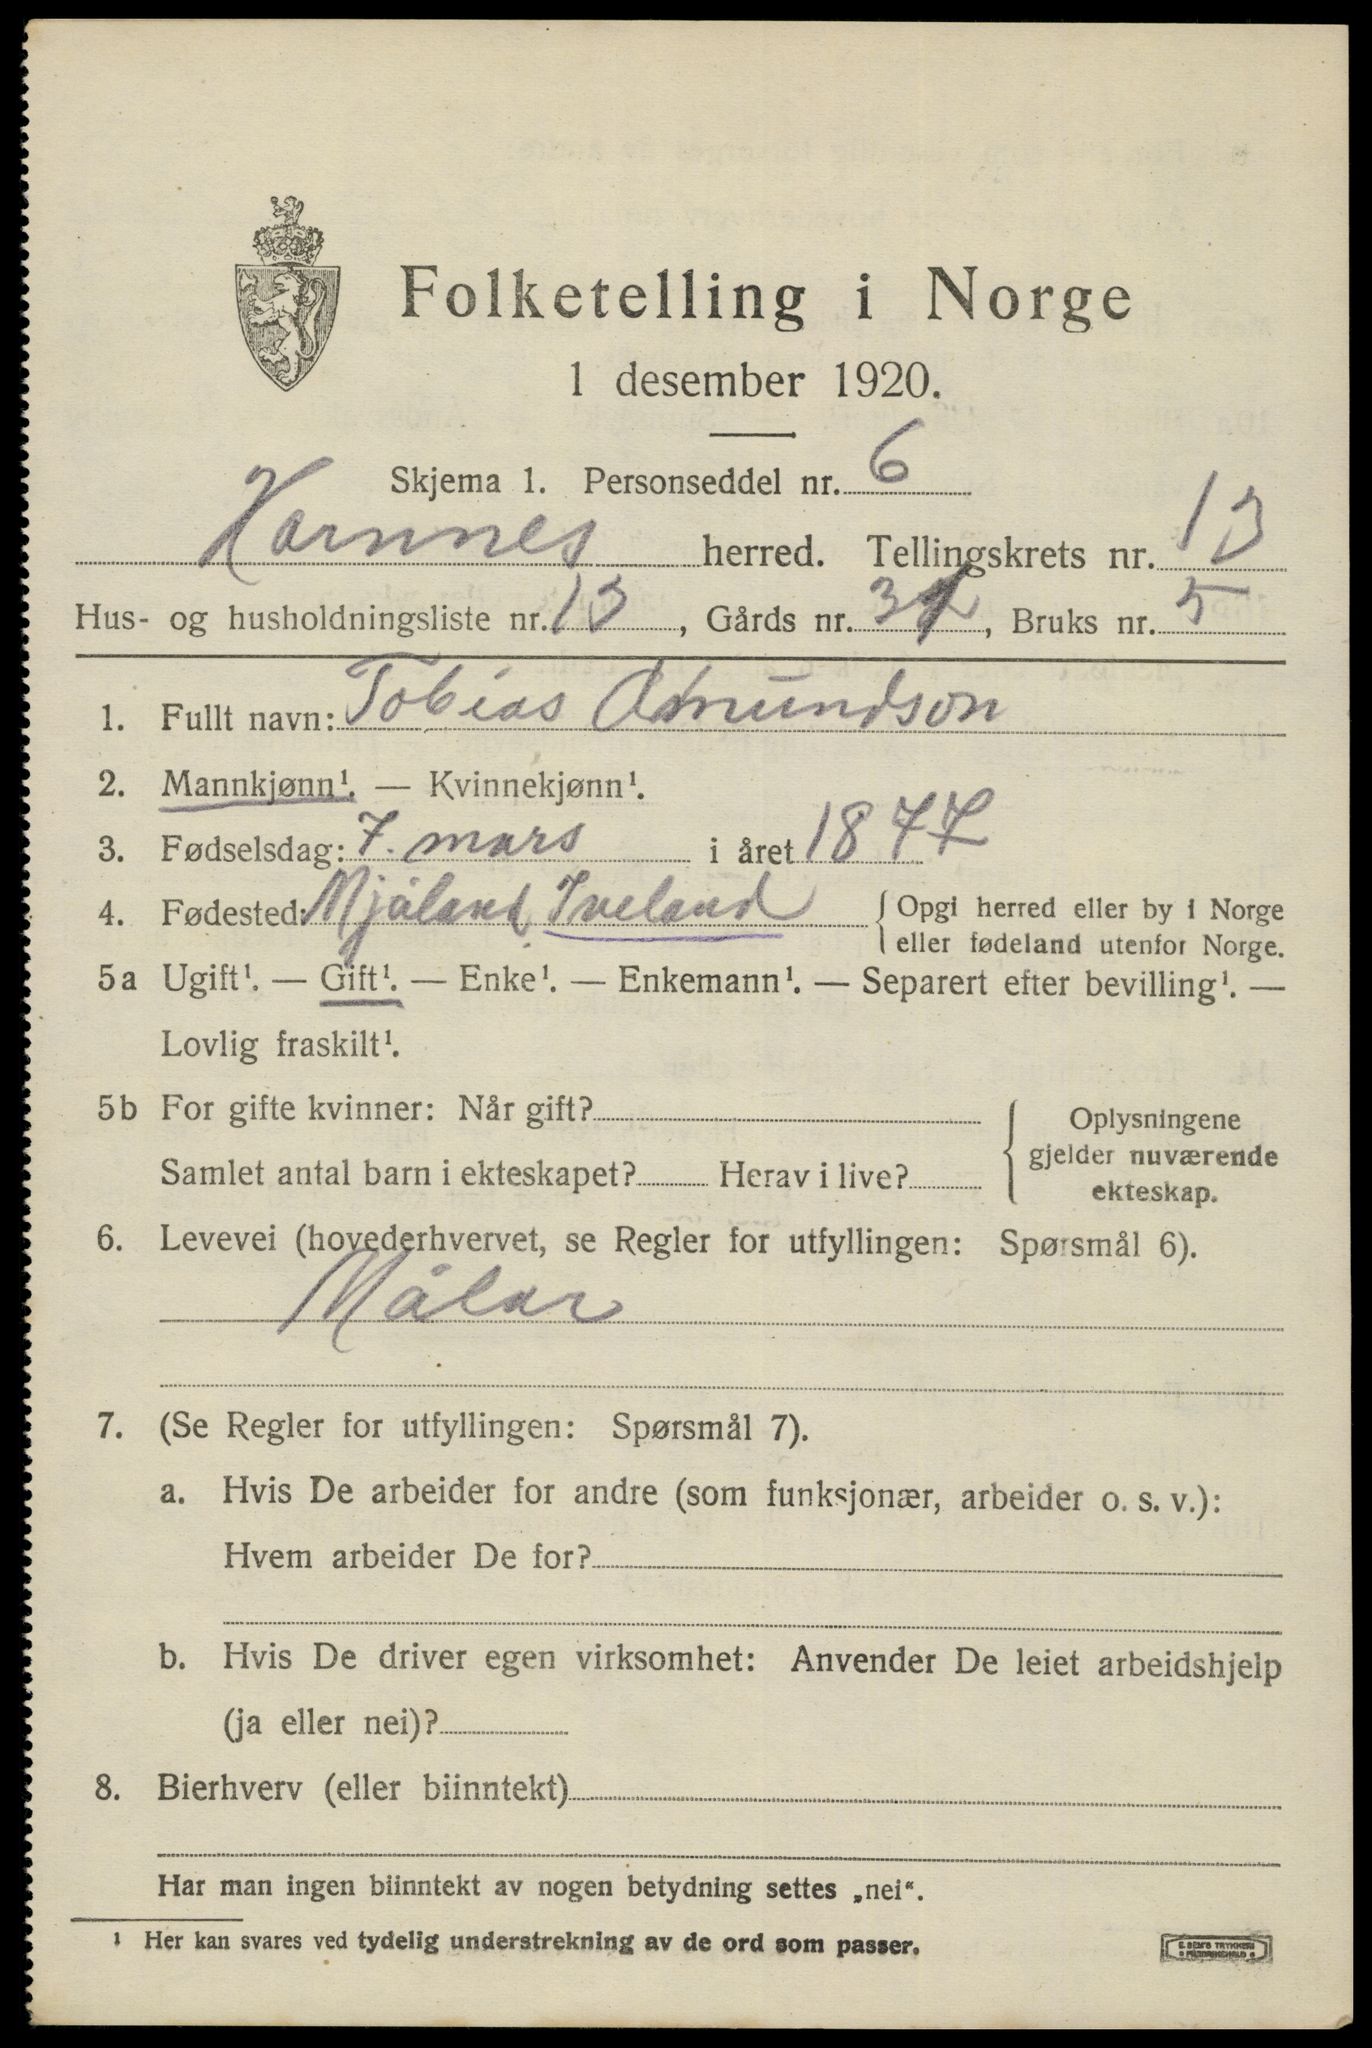 Folketelling i Norge
1 desember 1920.
Skjema 1. Personseddel nr. 6
Hornnes herred. Tellingskrets nr. 13
Hus- og husholdningsliste nr. 13, Gårds nr. 32, Bruks nr. 5
1. Fullt navn: Tobias Omundson
2. Mannkjønn¹. — Kvinnekjønn¹.
3. Fødselsdag: 7. mars i året 1877
4. Fødested: Mjåland, Iveland { Opgi herred eller by i Norge
eller fødeland utenfor Norge.
5a Ugift¹. — Gift¹. — Enke¹. — Enkemann¹. — Separert efter bevilling¹. —
Lovlig fraskilt¹.
5b For gifte kvinner: Når gift? { Oplysningene
gjelder nuværende
Samlet antal barn i ekteskapet? Herav i live?
ekteskap.
6. Levevei (hovederhvervet, se Regler for utfyllingen: Spørsmål 6).
Målar
7. (Se Regler for utfyllingen: Spørsmål 7).
a. Hvis De arbeider for andre (som funksjonær, arbeider o. s. v.):
Hvem arbeider De for?
b. Hvis De driver egen virksomhet: Anvender De leiet arbeidshjelp
(ja eller nei)?
8. Bierhverv (eller biinntekt)
Har man ingen biinntekt av nogen betydning settes „nei“.
¹ Her kan svares ved tydelig understrekning av de ord som passer.